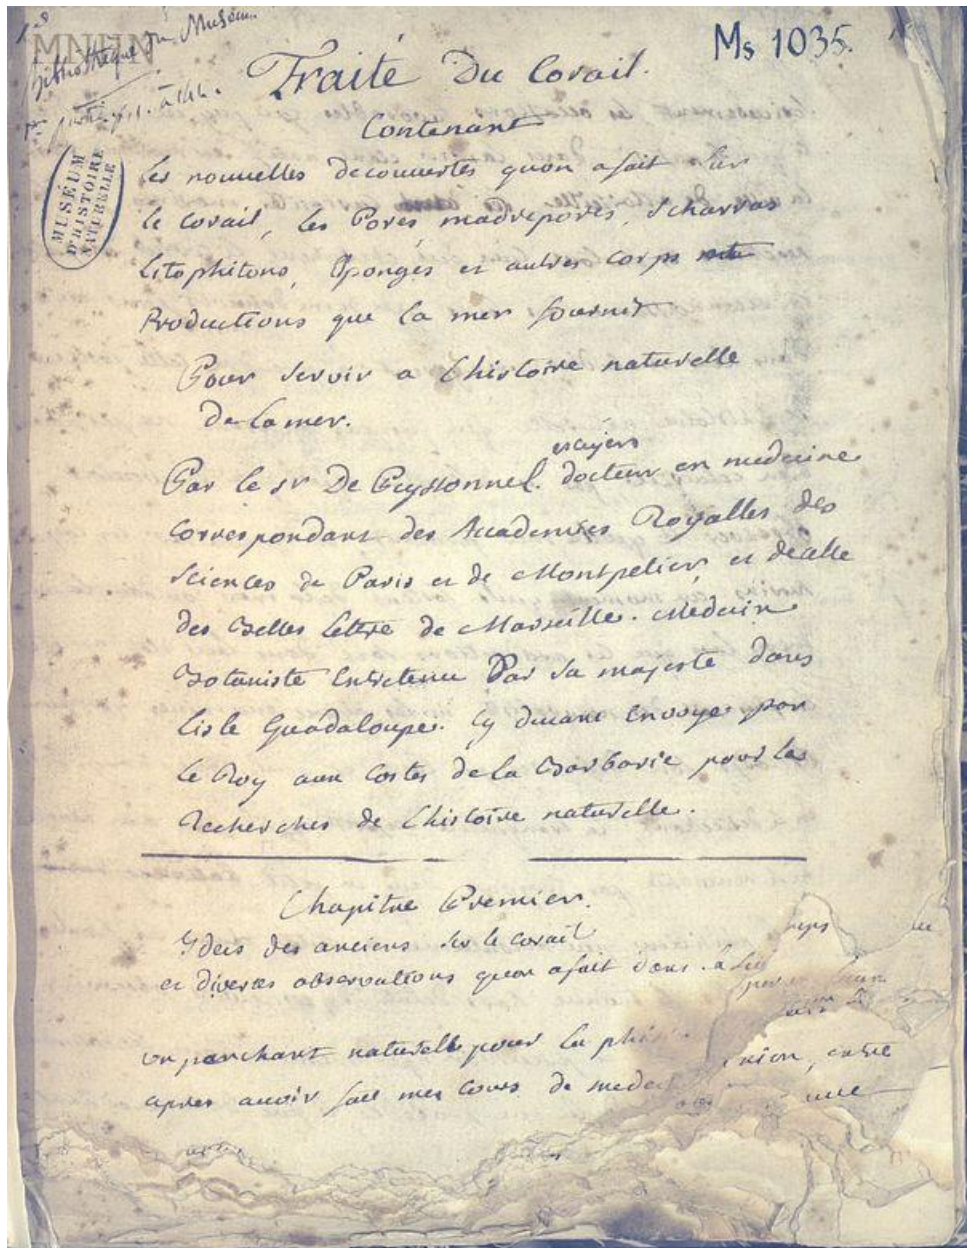 MNHN
Bibliothèque du Muséum
Ms 1035.
MUSÉUM
D'HISTOIRE
NATURELLE
Traité Du Corail.
Contenant
les nouvelles decouvertes quon afait sur
le corail, les Pores, madrepores, scharras
litophitons, Eponges et autres corps
Productions que la mer fournit
Pour servir a lhistoire naturelle
de la mer.
ecuyers
Par le sr De Peyssonnel. docteur en medecine
correspondant des Academies Royalles des
sciences de Paris et de Montpelier, et decelle
des Belles lettre de Marseille. Medecin
Botaniste Entretenu Par sa majesté dans
lisle Guadaloupe. Cy devant Envoyé par
le Roy aux Costes de la Barbarie pour les
Recherches de lhistoire naturelle.
Chapitre Premier.
Ydeés des anciens sur le corail
et diverses observations quon afait dans
un panchant naturelle pour la entre
apres avoir fait mes cours de une